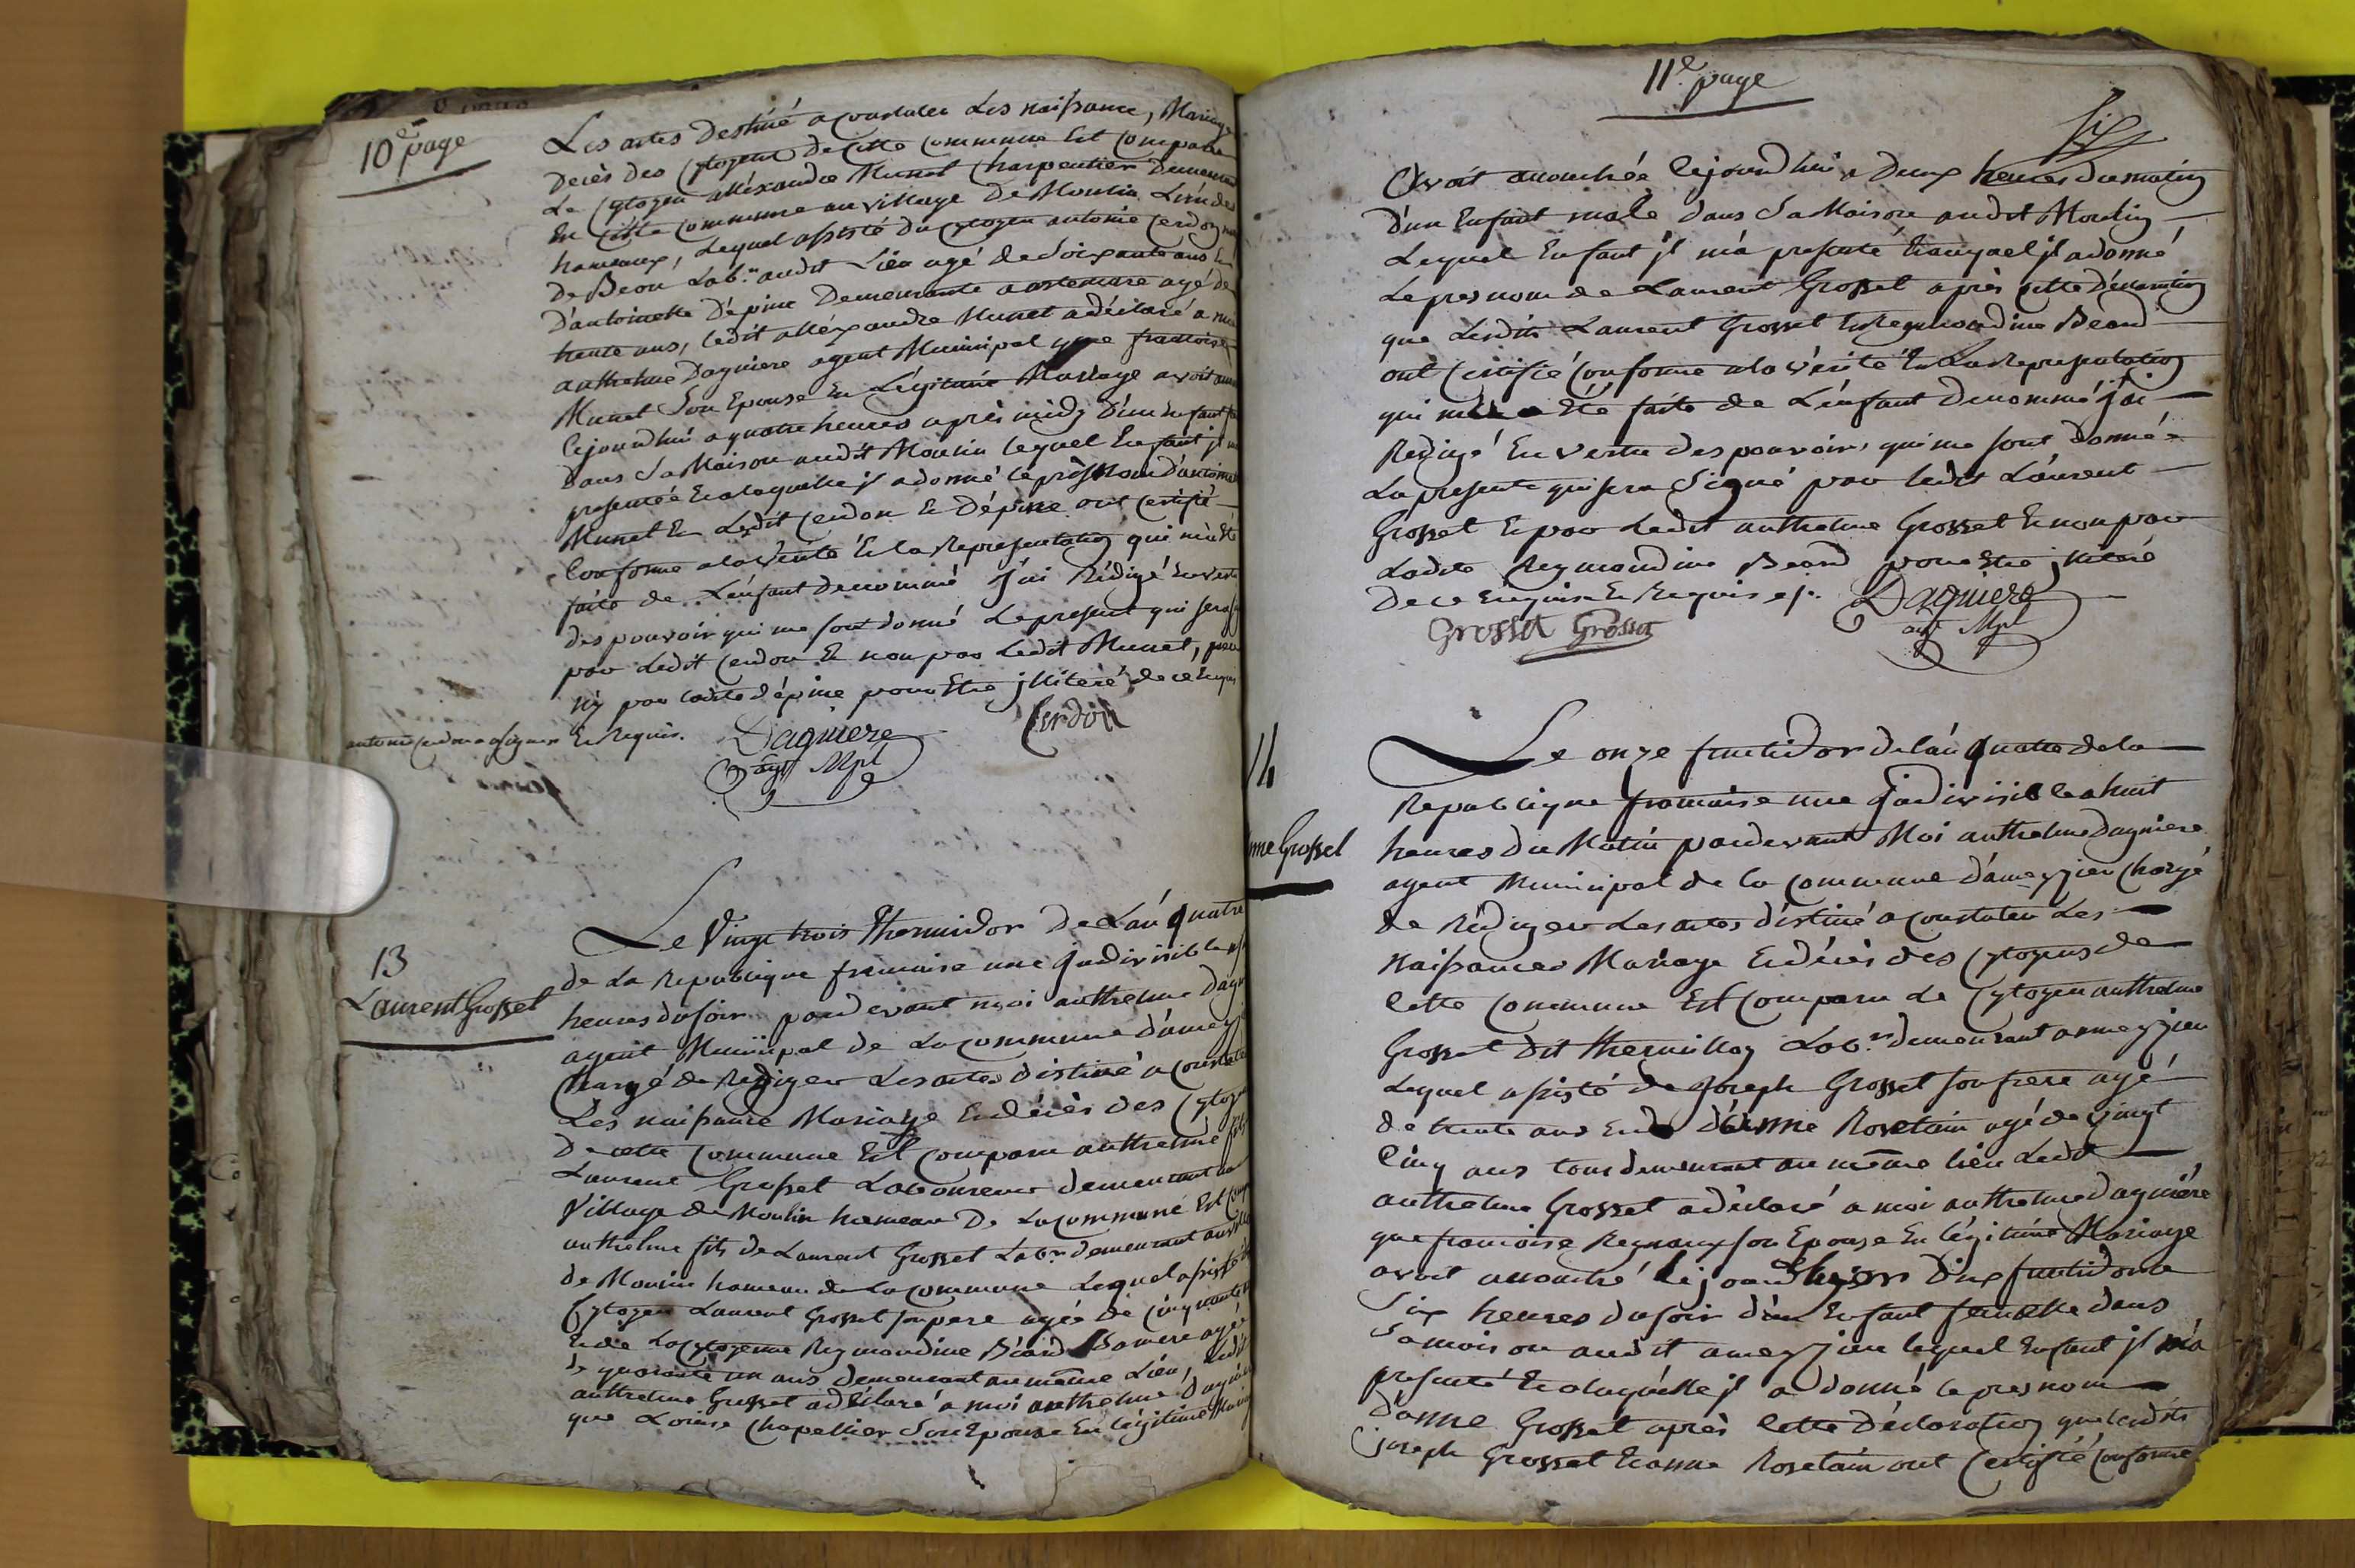 10e page
Les actes destiné a constater Les naissance, Mariage
deces des Cytoyens de Cette Commune Est Comparu
Le Cytoyen alléxandre Munet Charpentier Demeurant
En Cette Commune au village De Moulin L'un des
hameaux, Lequel assisté du Cytoyen antoine Cerdon
de Beon Lab.r audit Lieu agé de Soixante ans
D'antoinette D'épine Demeurante a agé de
trente ans, ledit alléxandre Munet a déclaré a moi
anthelme Dagniere agent Municipal que francoise
Munet Son Epouse En Légitimé Mariage avoit
Cejourdhui a quatre heures après midy D'un Enfant
Dans Sa Maison audit Moulin lequel Enfant il
presenté Et alaquelle il a donné le présnom d'antoine
Munet Et Ledit Cerdon Et D'épine ont Certifié
Conforme ala Vérité Et la Representation qui m'a Eté
faite de L'enfant denommé j'ai Rédigé En vertu
des pouvoir qui me sont donné Le present qui sera
par Ledit Cerdon Et non par Ledit Munet,
ny par ladite d'épine pour Etre jlliteré de ce Enquis
antoine Cerdon a signer Et Requis.
Dagniere
agt Mpl
Cerdon
13
Laurent Grosset
Le Vingt trois Thermidor De L'an quatre
de La Republique francaise une Jndivisible
heures du soir pardevant moi anthelme
agent Municipal de La Commune d'ameyzieu
Chargé de Rediger Les actes Destiné a Constater
Les naissance Mariage Et deces des Cytoyens
De cette Commune Est Comparu anthelme fils
Laurent Grosset Laboureur demeurant au
Village de Moulin hameau De La Commune Est
anthelme fils de Laurent Grosset Lab.r demeurant au
de Moulin hameau de La Commune Lequel assisté
Cytoyen Laurent Grosset son pere agé de Cinquante
Et de La Cytoyenne Reymondine Béard Sa mere agée
de quarante un ans demeurant au même Lieu, Ledit
anthelme Grosset a déclaré a moi anthelme
que Loüise Chapellier Son Epouse En légitime
11e page
Six
Avoit accouchée Cejourdhui a Deux heures du matin
D'un Enfant male dans Sa Maison audit Moulin
Lequel Enfant jl m'a presenté Et auquel jl a donné
Le presnom de Laurent Grosset après cette Déclaration
que Lesdits Laurent Grosset Et Reymondine Béard
ont Certifié Conforme ala vérité Et La Representation
qui m'a Eté faite de L'enfant Denommé j'ai
Redigé En vertu des pouvoirs qui me sont donnée
La presente qui sera Signé par ledit Laurent
Grosset Et par Ledit anthelme Grosset Et non par
Ladite Reymondine Beard pour Etre jlliteré
De ce Enquise Et Requise.
Dagniere
agt Mpl
Grosset Grosset
14
nne Grosset
Le onze fructidor de l'an quatre de la
Republique francaise une Jndivisible a huit
heures du Matin pardevant Moi anthelme Dagniere
agent Municipal de la Commune d'ameyzieu Chargé
de Rédiger Les actes déstiné a Constater Les
naissances Mariage Et décés des Cytoyens de
Cette Commune Est Comparu Le Cytoyen anthelme
Grosset dit thermillon Lab.r demeurant a ameyzieu
Lequel assisté de Joseph Grosset son frere agé
de trente ans Et d'anne Rosetain agé de vingt
Cinq ans tous demeurant au même lieu Ledit
anthelme Grosset a déclaré a moi anthelme Dagniére
que francoise Regnaux son Epouse En légitime Mariage
avoit accouché hier Dix fructidor a
Six heures du soir d'un Enfant femelle dans
Sa maison audit ameyzieu lequel Enfant jl m'a
presenté Et alaquélle jl a donné le presnom
D'anne Grosset après Cette Déclaration que lesdits
joseph Grosset Et anne Rosetain ont Certifié Conforme